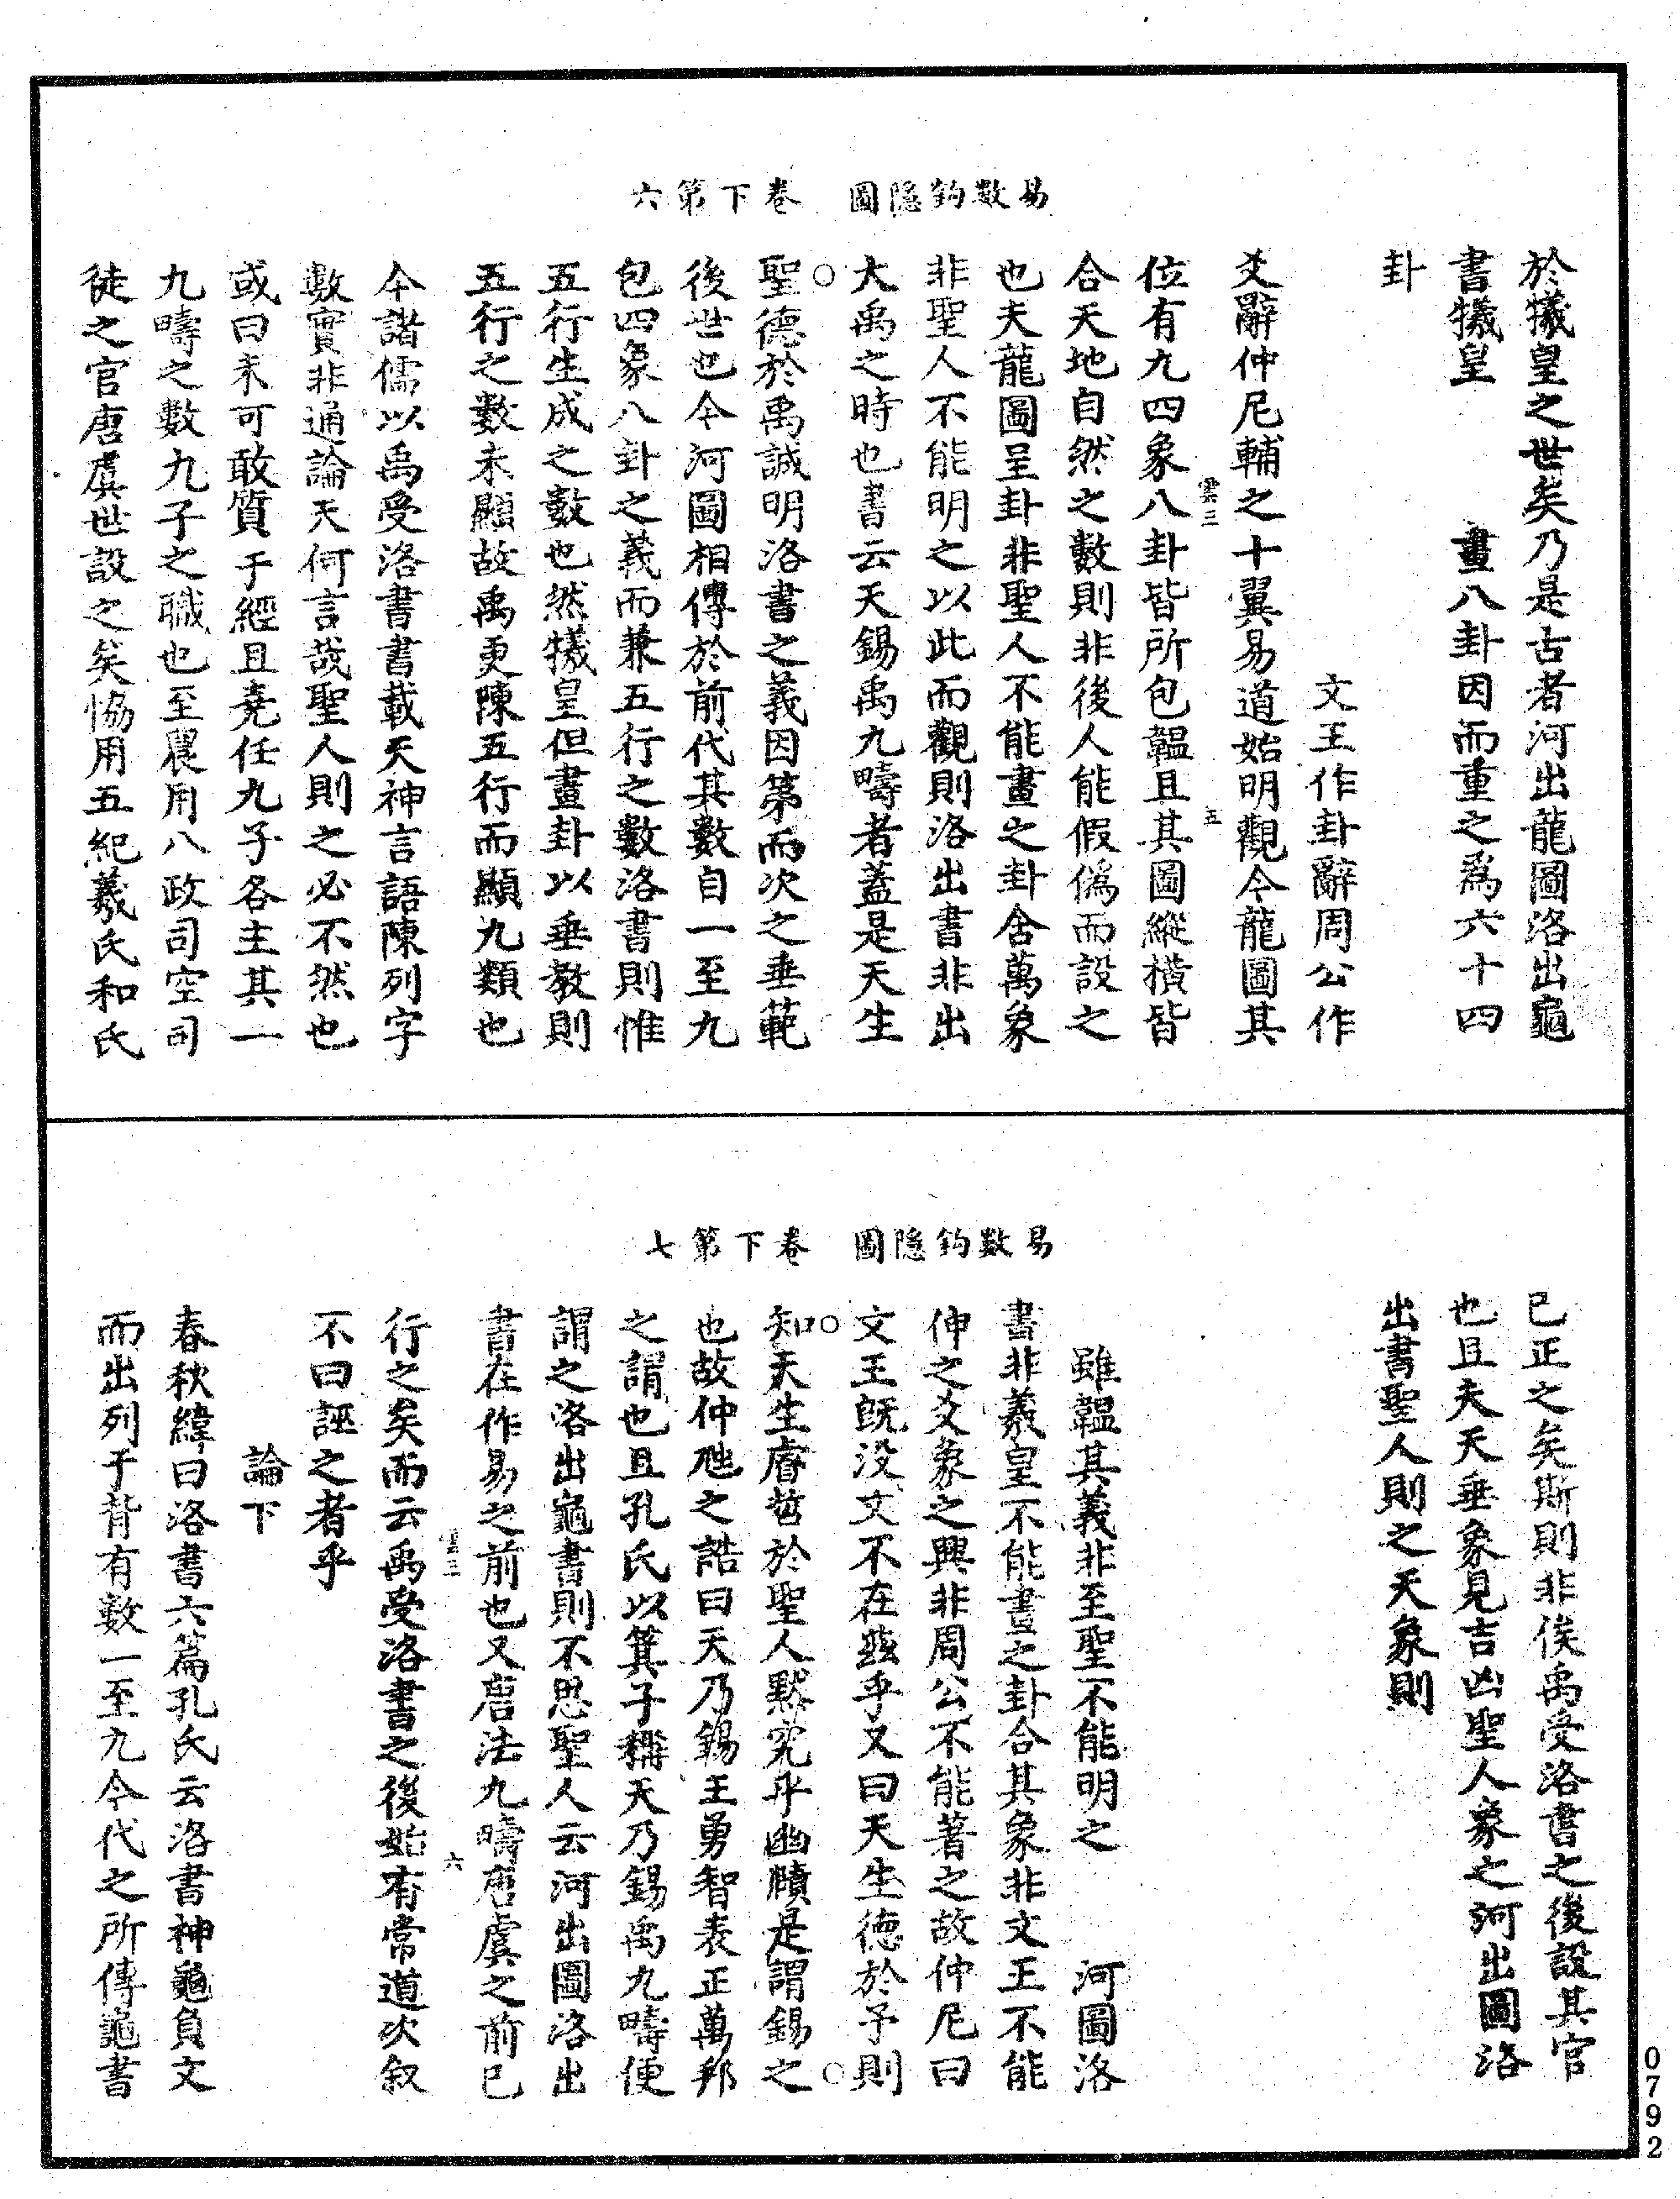 易數鈎隱圖　卷下第六
於犧皇之世矣乃是古者河出龍圖洛出龜
書犧皇　　　畫八卦因而重之爲六十四
卦
文王作卦辭周公作
爻辭仲尼輔之十翼易道始明觀今龍圖其
雲三　五
位有九四象八卦皆所包韞且其圖縱橫皆
合天地自然之數則非後人能假僞而設之
也夫龍圖呈卦非聖人不能畫之卦含萬象
非聖人不能明之以此而觀則洛出書非出
大禹之時也書云天錫禹九疇者蓋是天生
○
聖德於禹誠明洛書之義因第而次之垂範
後世也今河圖相傳於前代其數自一至九
包四象八卦之義而兼五行之數洛書則惟
五行生成之數也然犧皇但畫卦以垂教則
五行之數未顯故禹更陳五行而顯九類也
今諸儒以禹受洛書書載天神言語陳列字
數實非通論天何言哉聖人則之必不然也
或曰未可敢質于經且堯任九子各主其一
九疇之數九子之職也至農用八政司空司
徒之官唐虞世設之矣協用五紀羲氏和氏
易數鈎隱圖　卷下第七
已正之矣斯則非俟禹受洛書之後設其官
也且夫天垂象見吉凶聖人象之河出圖洛
出書聖人則之天象則
雖韞其義非至聖不能明之　　河圖洛
書非羲皇不能畫之卦合其象非文王不能
伸之爻象之興非周公不能著之故仲尼曰
文王旣没文不在玆乎又曰天生德於予則
○　○
知天生睿哲於聖人默究乎幽賾是謂錫之
也故仲虺之誥曰天乃錫王勇智表正萬邦
之謂也且孔氏以箕子稱天乃錫禹九疇便
謂之洛出龜書則不思聖人云河出圖洛出
書在作易之前也又唐法九疇唐虞之前已
雲三　六
行之矣而云禹受洛書之後始有常道次叙
不曰誣之者乎
論下
春秋緯曰洛書六篇孔氏云洛書神龜負文
而出列于背有數一至九今代之所傳龜書
0792